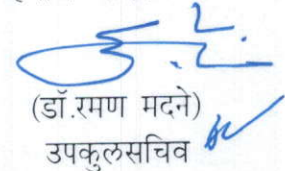 (डॉ.रमण मदने)
उपकुलसचिव